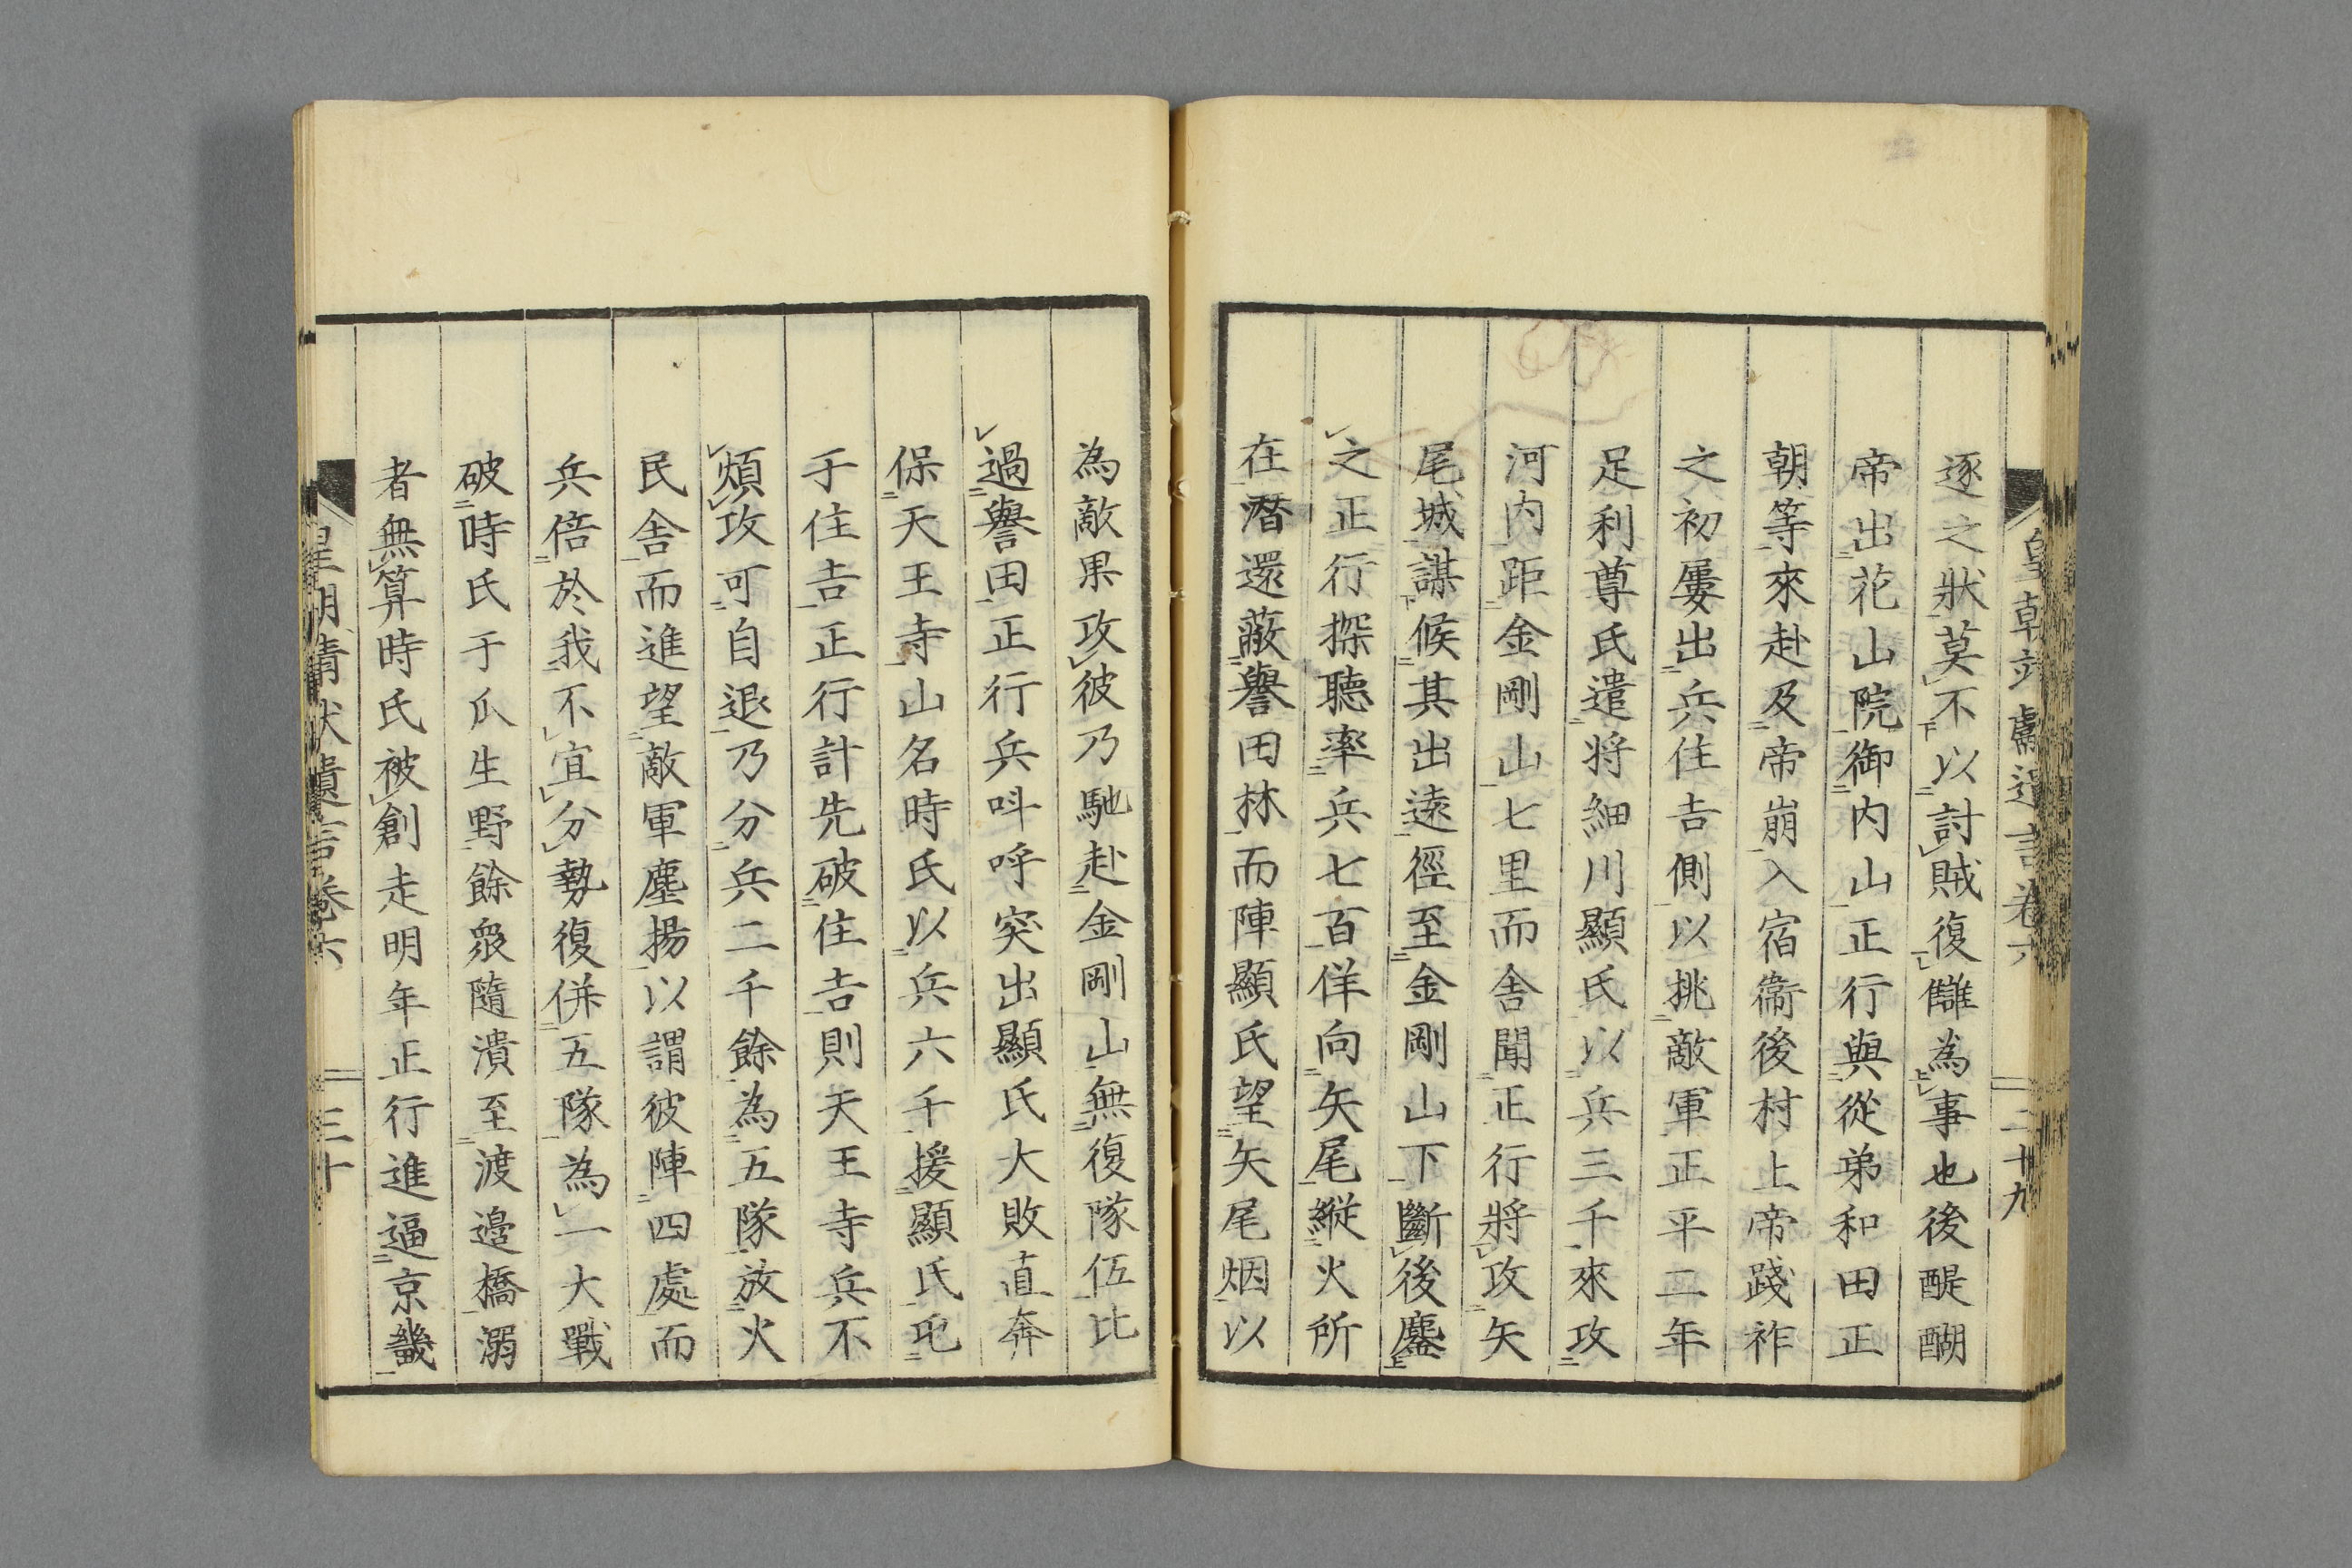 逐之狀莫不以討賊復讎為事也後醍醐
帝出花山院御内山正行與從弟和田正
朝等來赴及帝崩入宿衞後村上帝踐祚
之初屢出兵住吉側以挑敵軍正平二年
足利尊氏遣将細川顯氏以兵三千來攻
河内距金剛山七里而舎聞正行將攻矢
尾城謀候其出遠徑至金剛山下斷後鏖
之正行探聽率兵七百佯向矢尾縱火所
在潛還蔽譽田林而陣顯氏望矢尾烟以
為敵果攻彼乃馳赴金剛山無復隊伍比
過譽田正行兵呌呼突出顯氏大敗直奔
保天王寺山名時氏以兵六千援顯氏屯
于住吉正行計先破住吉則天王寺兵不
煩攻可自退乃分兵二千餘為五隊放火
民舎而進望敵軍塵揚以謂彼陣四處而
兵倍於我不宜分勢復併五隊為一大戰
破時氏于瓜生野餘衆隨潰至渡邉橋溺
者無算時氏被創走明年正行進逼京畿
卷六
二十九
三十